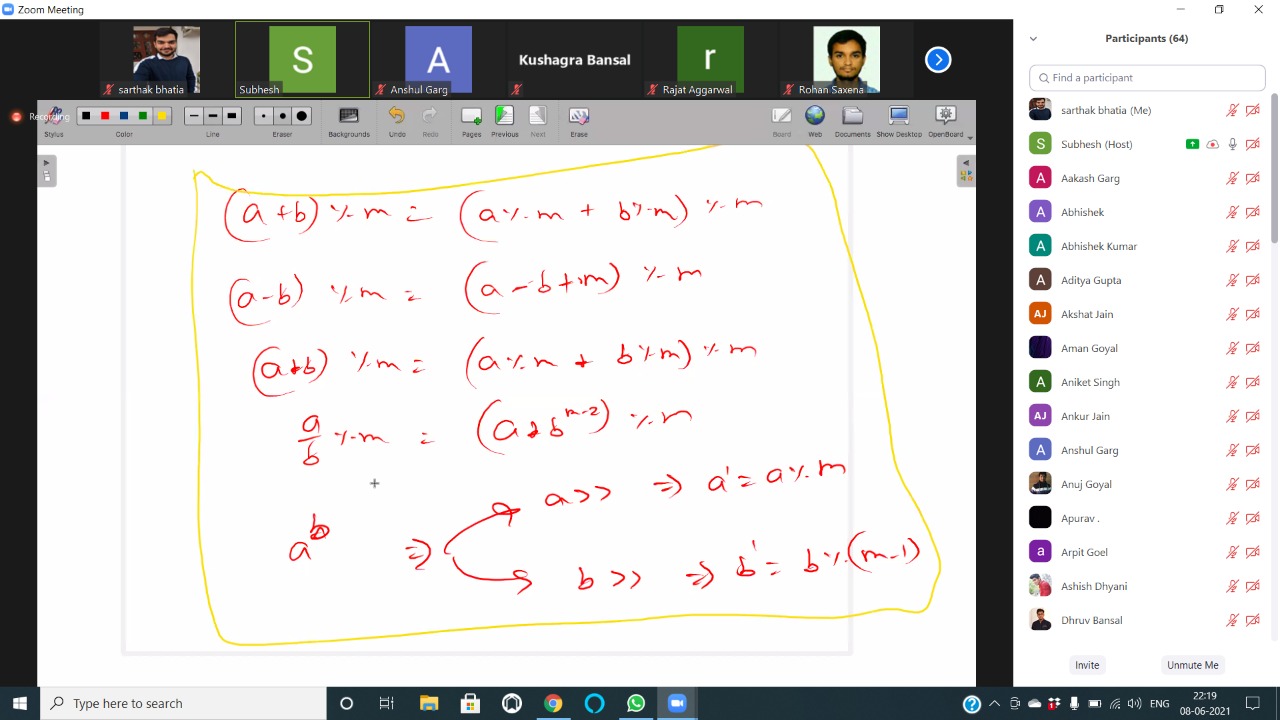 Zoom Meeting
sarthak bhatia
S
Subhesh
A
Anshul Garg
Kushagra Bansal
r
Rajat Aggarwal
Rohan Saxena
Recording
Styles
Color
Line
Eraser
Backgrounds
Undo
Redo
Pages
Previous
Next
Erase
Board
Web
Documents
Show Desktop
OpenBoard
(a+b) % m = (a % m + b % m) % m
(a-b) % m = (a - b + m) % m
(a*b) % m = (a % m * b % m) % m
a/b % m = (a * b^(m-2)) % m
a^b ⇒
a >> ⇒ a' = a % m
b >> ⇒ b' = b % (m-1)
Participants (64)
Find a participant
sarthak bhatia (Me)
S Subhesh (Host)
A Aakash Garg
A Abhishek
A Abhishek Kumar
Aditya Gupta
AJ Akshat Jain
Aman Goyal
A Aniket Singh
AJ Ankur Jain
A Anshul Garg
Anuj Goyal
Apurav .
a Arpit Goel
Ashish Dhyani
Dhruv Bansal
Invite
Unmute Me
Type here to search
ENG
22:19
08-06-2021